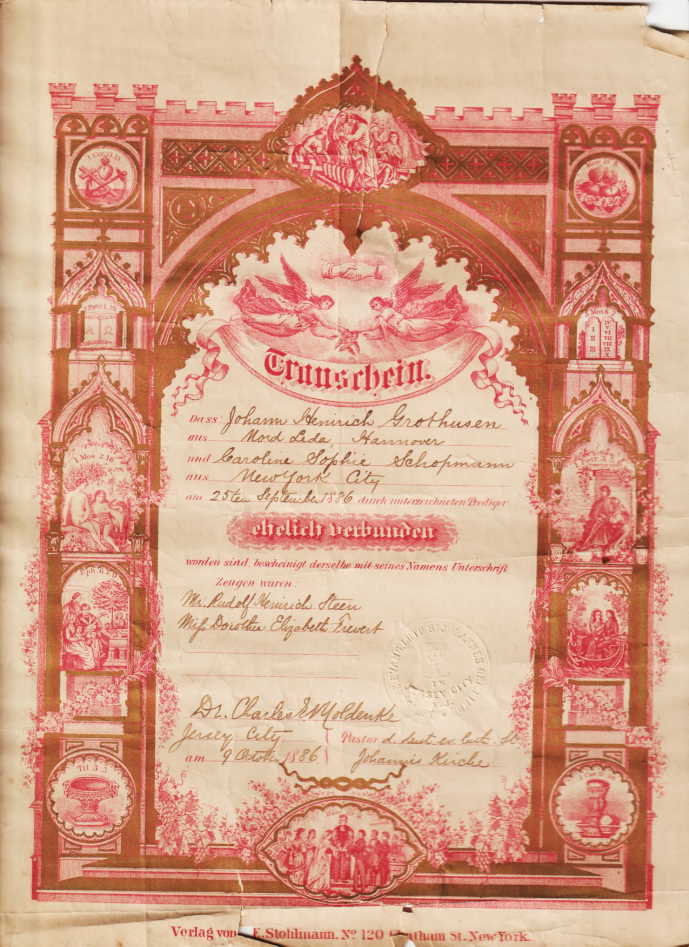 Trauschein.
Dass Johann Heinrich Grothusen
aus Nord Leda, Hannover
und Caroline Sophie Schopmann
aus New York City
am 25ten September 1886 durch unterzeichneten Prediger
ehelich verbunden
worden sind, bescheinigt derselbe mit seines Namens Unterschrift
Zeugen waren:
Mr. Rudolf Heinrich Steen
Miss Dorothea Elizabeth Frevert
Dr. Charles E. Moldenke
Jersey City Pastor d. deut ev luth St
am 9 October 1886 Johannis Kirche
Verlag von E. Stohlmann. No 120 Chatham St. New York.